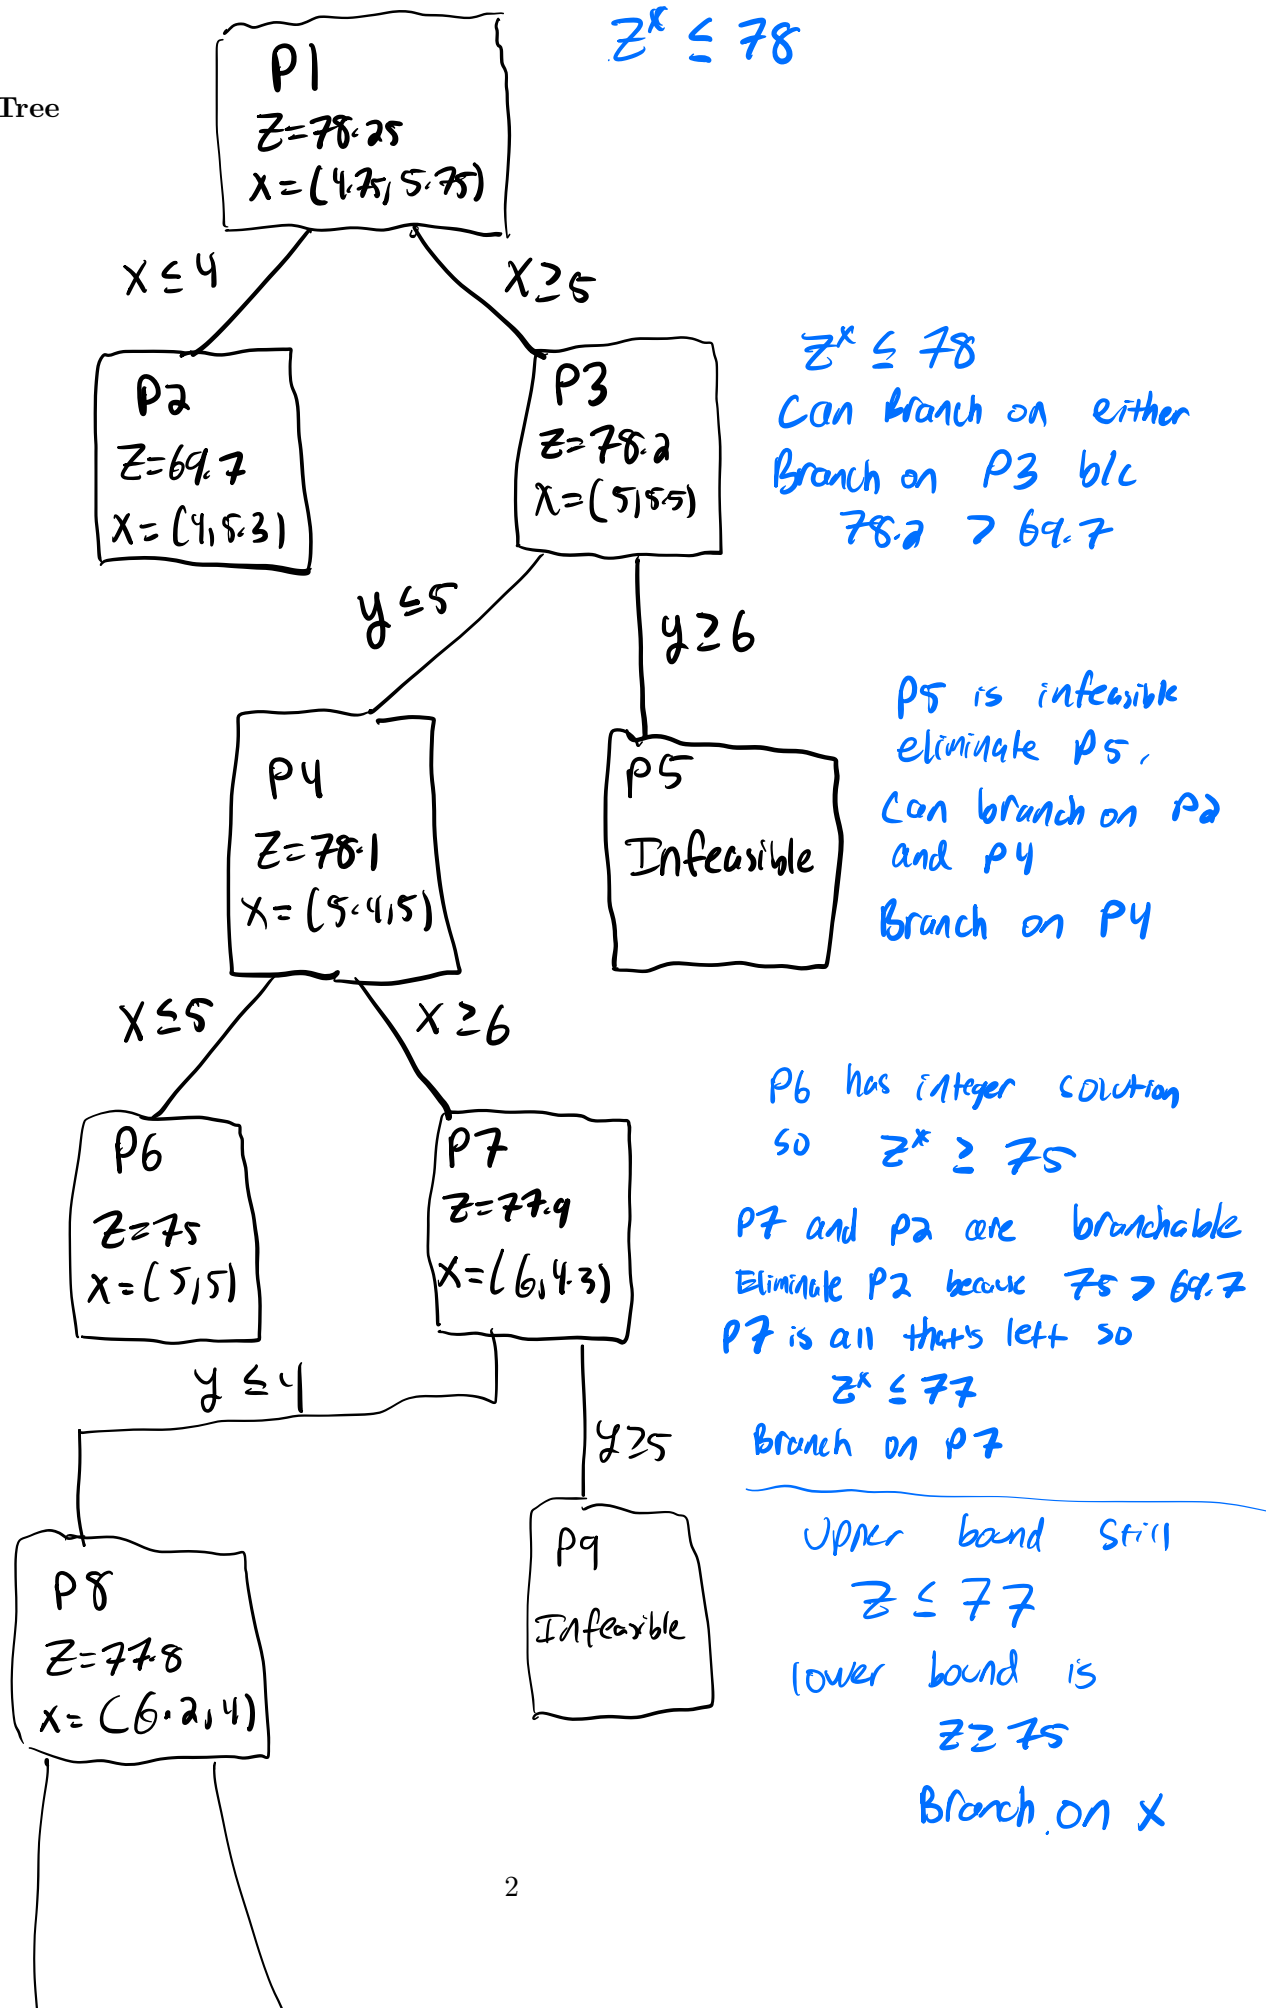 Tree
P1
Z=78.25
x=(4.75, 5.75)
z* ≤ 78
x ≤ 4
x ≥ 5
P2
Z=69.7
x=(4, 5.3)
P3
Z=78.2
x=(5, 5.5)
z* ≤ 78
Can Branch on either
Branch on P3 b/c
78.2 > 69.7
y ≤ 5
y ≥ 6
P4
Z=78.1
x=(5.4, 5)
P5
Infeasible
P5 is infeasible
eliminate P5.
Can branch on P2
and P4
Branch on P4
x ≤ 5
x ≥ 6
P6
Z=75
x=(5, 5)
P7
Z=77.9
x=(6, 4.3)
P6 has integer solution
so z* ≥ 75
P7 and P2 are branchable
Eliminate P2 because 75 > 69.7
P7 is all that's left so
z* ≤ 77
Branch on P7
y ≤ 4
y ≥ 5
P8
Z=77.8
x=(6.2, 4)
P9
Infeasible
Upper bound still
Z ≤ 77
lower bound is
Z ≥ 75
Branch on x
2